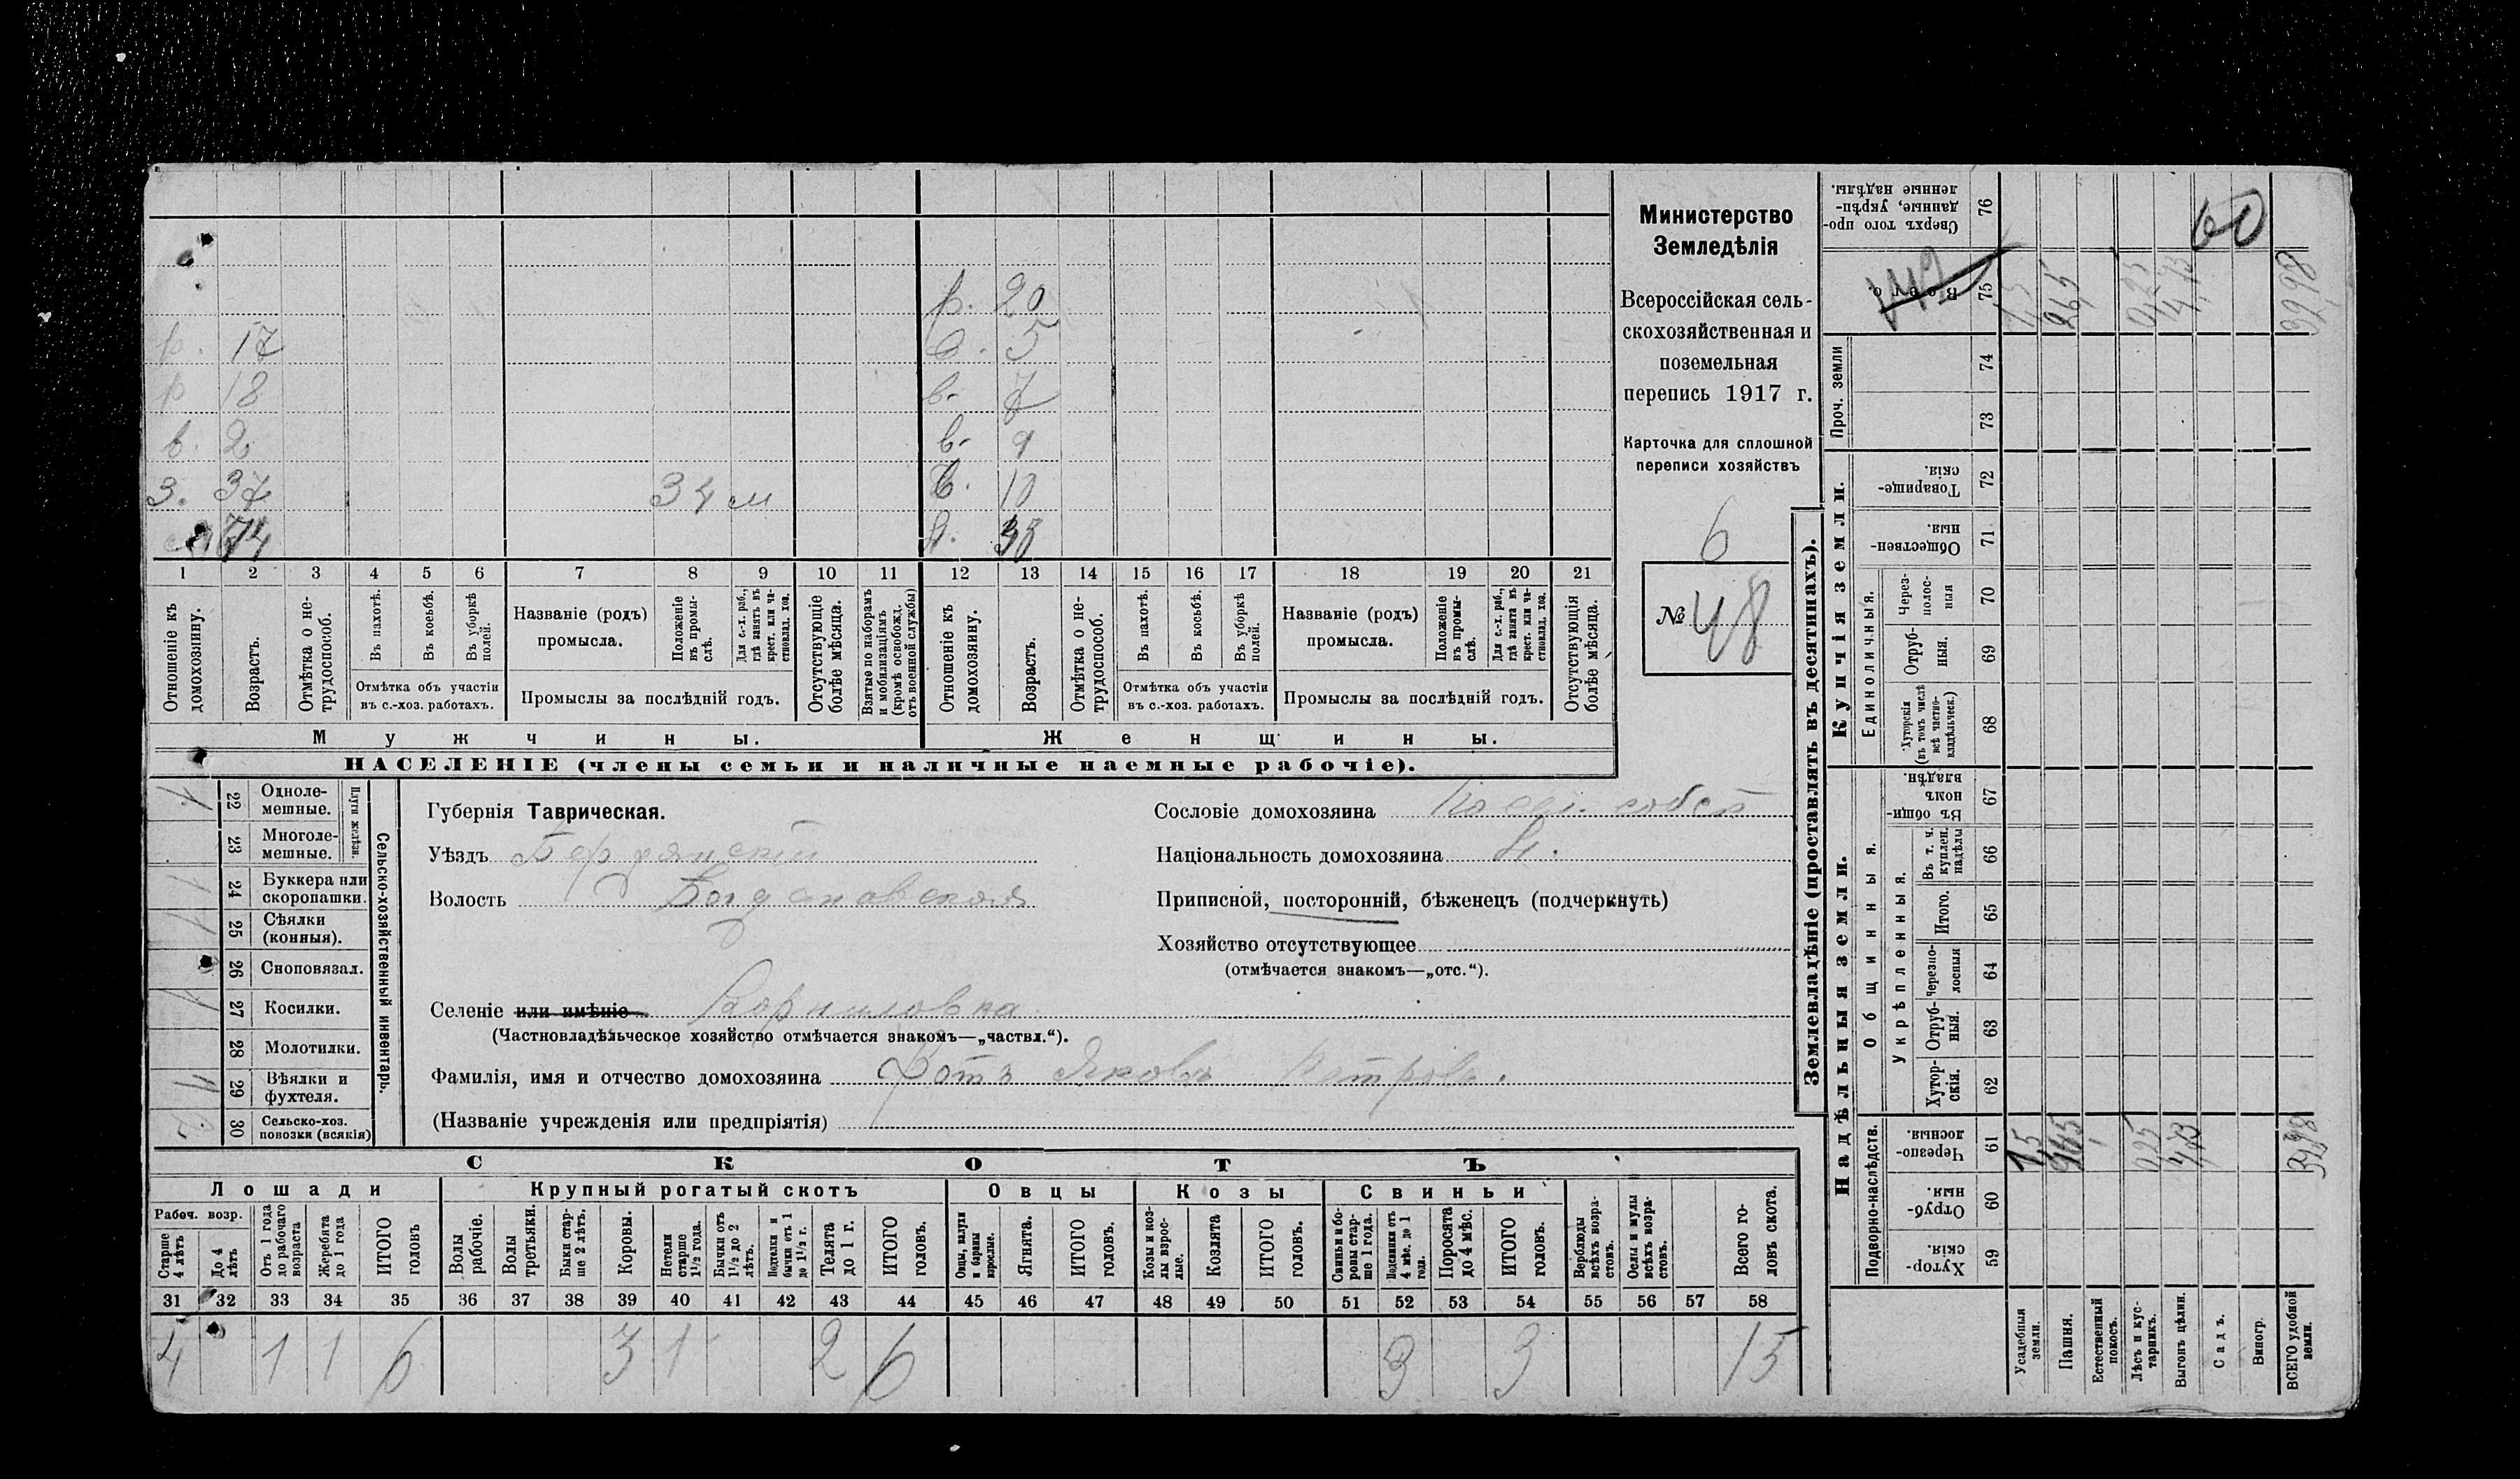 Министерство
Земледѣлія
Всероссійская сель-
скохозяйственная и
поземельная
перепись 1917 г.
Карточка для сплошной
переписи хозяйствъ
6
№ 48
р. 20
р. 17 5
р 18 в. 7
в. 2 в. 9
З. 37 в. 10
1 2 3 4 5 6 7 8 9 10 11 12 13 14 15 16 17 18 19 20 21
Отношеніе къ домохозяину.
Возрастъ.
Отмѣтка о не-трудоспособ.
Въ пахотѣ.
Въ косьбѣ.
Въ уборкѣ полей.
Отмѣтка объ участіи
въ с.-хоз. работахъ.
Названіе (родъ)
промысла.
Положеніе въ промы-слѣ.
Для с.-х. раб., гдѣ занятъ въ крест. или ча-стновлад. хоз.
Промыслы за послѣдній годъ.
Отсутствующіе болѣе мѣсяца.
Взятые по наборамъ и мобилизаціямъ (кромѣ освобожд. отъ военной службы)
Отношеніе къ домохозяину.
Возрастъ.
Отмѣтка о не-трудоспособ.
Въ пахотѣ.
Въ косьбѣ.
Въ уборкѣ полей.
Отмѣтка объ участіи
въ с.-хоз. работахъ.
Названіе (родъ)
промысла.
Положеніе въ промы-слѣ.
Для с.-х. раб., гдѣ занята въ крест. или ча-стновлад. хоз.
Промыслы за послѣдній годъ.
Отсутствующія болѣе мѣсяца.
Мужчины.
Женщины.
НАСЕЛЕНІЕ (члены семьи и наличные наемные рабочіе).
Сельско-хозяйственный инвентарь.
Плуги желѣзн.
22 Одноле-мешные.
23 Многоле-мешные.
24 Буккера или скоропашки.
25 Сѣялки (конныя).
26 Сноповязал.
27 Косилки.
28 Молотилки.
29 Вѣялки и фухтеля.
30 Сельско-хоз. повозки (всякія)
Губернія Таврическая.
Уѣздъ Бердянскій
Волость Богдановская
Селеніе или имѣніе Корниловка
(Частновладѣльческое хозяйство отмѣчается знакомъ—„частвл.“).
Фамилія, имя и отчество домохозяина Фотъ Яковъ Петровъ.
(Названіе учрежденія или предпріятія)
Сословіе домохозяина Посел. собст
Національность домохозяина Н.
Приписной, посторонній, бѣженецъ (подчеркнуть)
Хозяйство отсутствующее
(отмѣчается знакомъ—„отс.“).
СКОТЪ
Лошади
Крупный рогатый скотъ
Овцы
Козы
Свиньи
Рабоч. возр.
Старше 4 лѣтъ
До 4 лѣтъ
Отъ 1 года до рабочаго возраста
Жеребята до 1 года
ИТОГО головъ
Волы рабочіе.
Волы третьяки.
Быки стар-ше 2 лѣтъ.
Коровы.
Нетели старше 1½ года.
Бычки отъ 1½ до 2 лѣтъ.
Подтелки и бычки отъ 1 до 1½ г.
Телята до 1 г.
ИТОГО головъ.
Овцы, валухи и бараны взрослые.
Ягнята.
ИТОГО головъ.
Козы и коз-лы взрос-лые.
Козлята
ИТОГО головъ.
Свиньи и бо-ровы стар-ше 1 года.
Подсвинки отъ 4 мѣс. до 1 года.
Поросята до 4 мѣс.
ИТОГО головъ.
Верблюды всѣхъ возра-стовъ.
Ослы и мулы всѣхъ возра-стовъ.
Всего го-ловъ скота.
31 32 33 34 35 36 37 38 39 40 41 42 43 44 45 46 47 48 49 50 51 52 53 54 55 56 57 58
4 1 1 6 3 1 2 6 3 3 15
Землевладѣніе (проставлять въ десятинахъ).
Надѣльныя земли.
Купчія земли.
Проч. земли
Подворно-наслѣдств.
Общинныя.
Укрѣпленныя.
Единоличныя.
Сверхъ того про-данные, укрѣп-ленные надѣлы. 76
60
Всего. 75
74
73
Товарище-скія. 72
Обществен-ныя. 71
Через-полос-ныя 70
Отруб-ныя. 69
Хуторскія (въ томъ числѣ всѣ частно-владѣльческ.) 68
Въ общи-номъ владѣн. 67
Въ т. ч. куплен. надѣлы 66
Итого. 65
Черезпо-лосныя 64
Отруб-ныя. 63
Хутор-скія. 62
Черезпо-лосныя. 61
Отруб-ныя. 60
Хутор-скія 59
Усадебныя земли.
Пашня.
Естественный покосъ.
Лѣсъ и кус-тарникъ.
Выгонъ цѣлин.
Садъ.
Виногр.
ВСЕГО удобной земли.